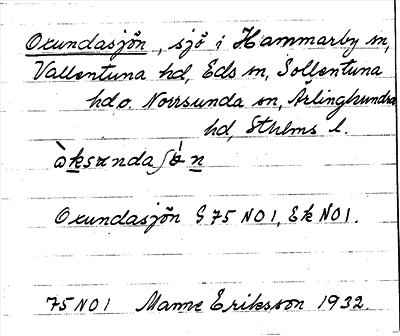 Oxundasjön, sjö i Hammarby sn,
Vallentuna hd, Eds sn, Sollentuna
hd o. Norrsunda sn, Ärlinghundra
hd, Sthlms l.
Oxundasjön G 75 NO1, Ek NO1.
75 NO1 Manne Eriksson 1932.